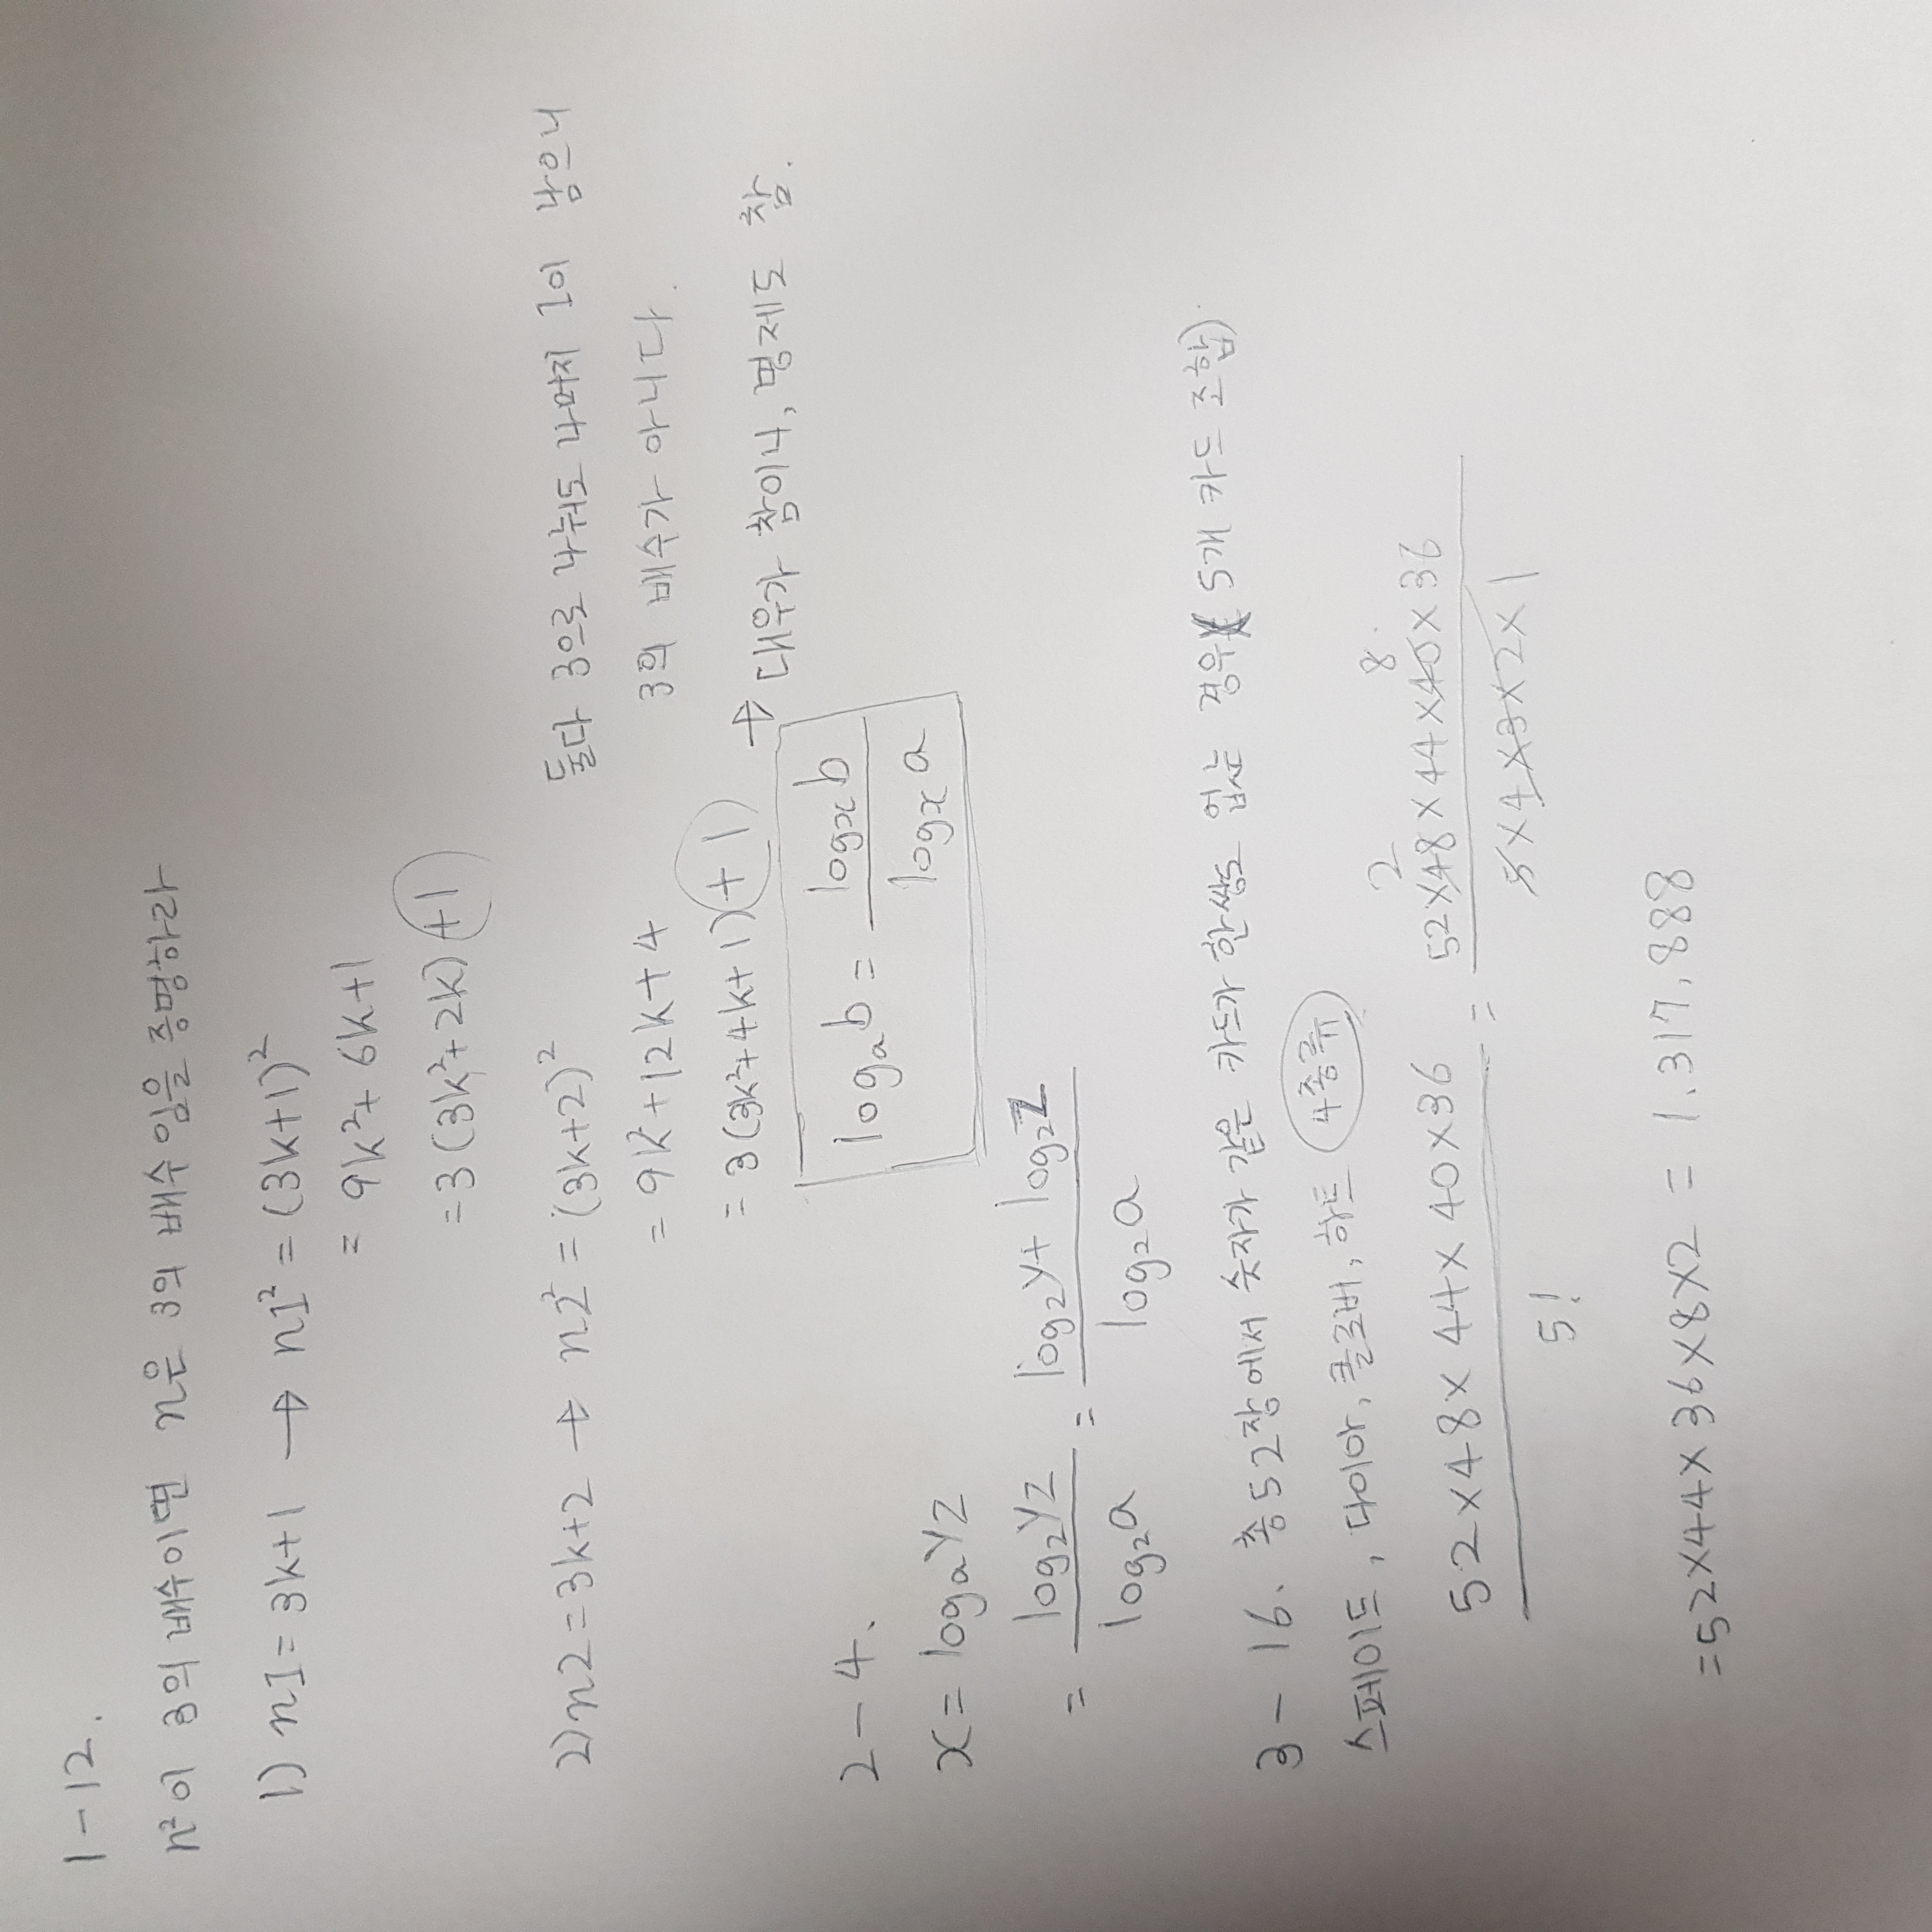 1-12.
n²이 3의 배수이면 n은 3의 배수임을 증명하라
1) n1 = 3k+1 → n1² = (3k+1)²
= 9k²+6k+1
= 3(3k²+2k)+1
2) n2 = 3k+2 → n2² = (3k+2)²
= 9k²+12k+4
= 3(3k²+4k+1)+1
둘다 3으로 나눠도 나머지 1이 남으니
3의 배수가 아니다.
→ 대우가 참이니, 명제도 참.
2-4.
log_a b = log_x b / log_x a
x = log_a yz
= log₂yz / log₂a = (log₂y + log₂z) / log₂a
3-16. 총 52장에서 숫자가 같은 카드가 한쌍도 없는 경우( 5개 카드 조합)
스페이드, 다이아, 클로버, 하트 4종류
2 8
52×48×44×40×36 / 5! = 52×48×44×40×36 / 5×4×3×2×1
= 52×44×36×8×2 = 1.317,888